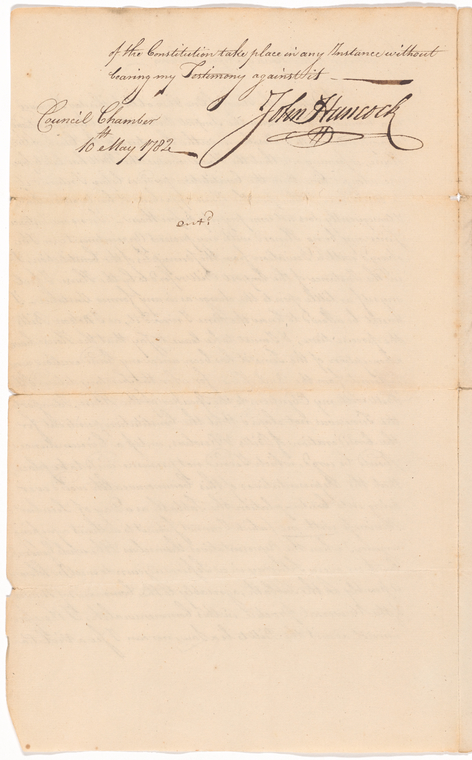 of the Constitution take place in any Instance without
bearing my Testimony against it
John Hancock
Council Chamber
10th May 1782